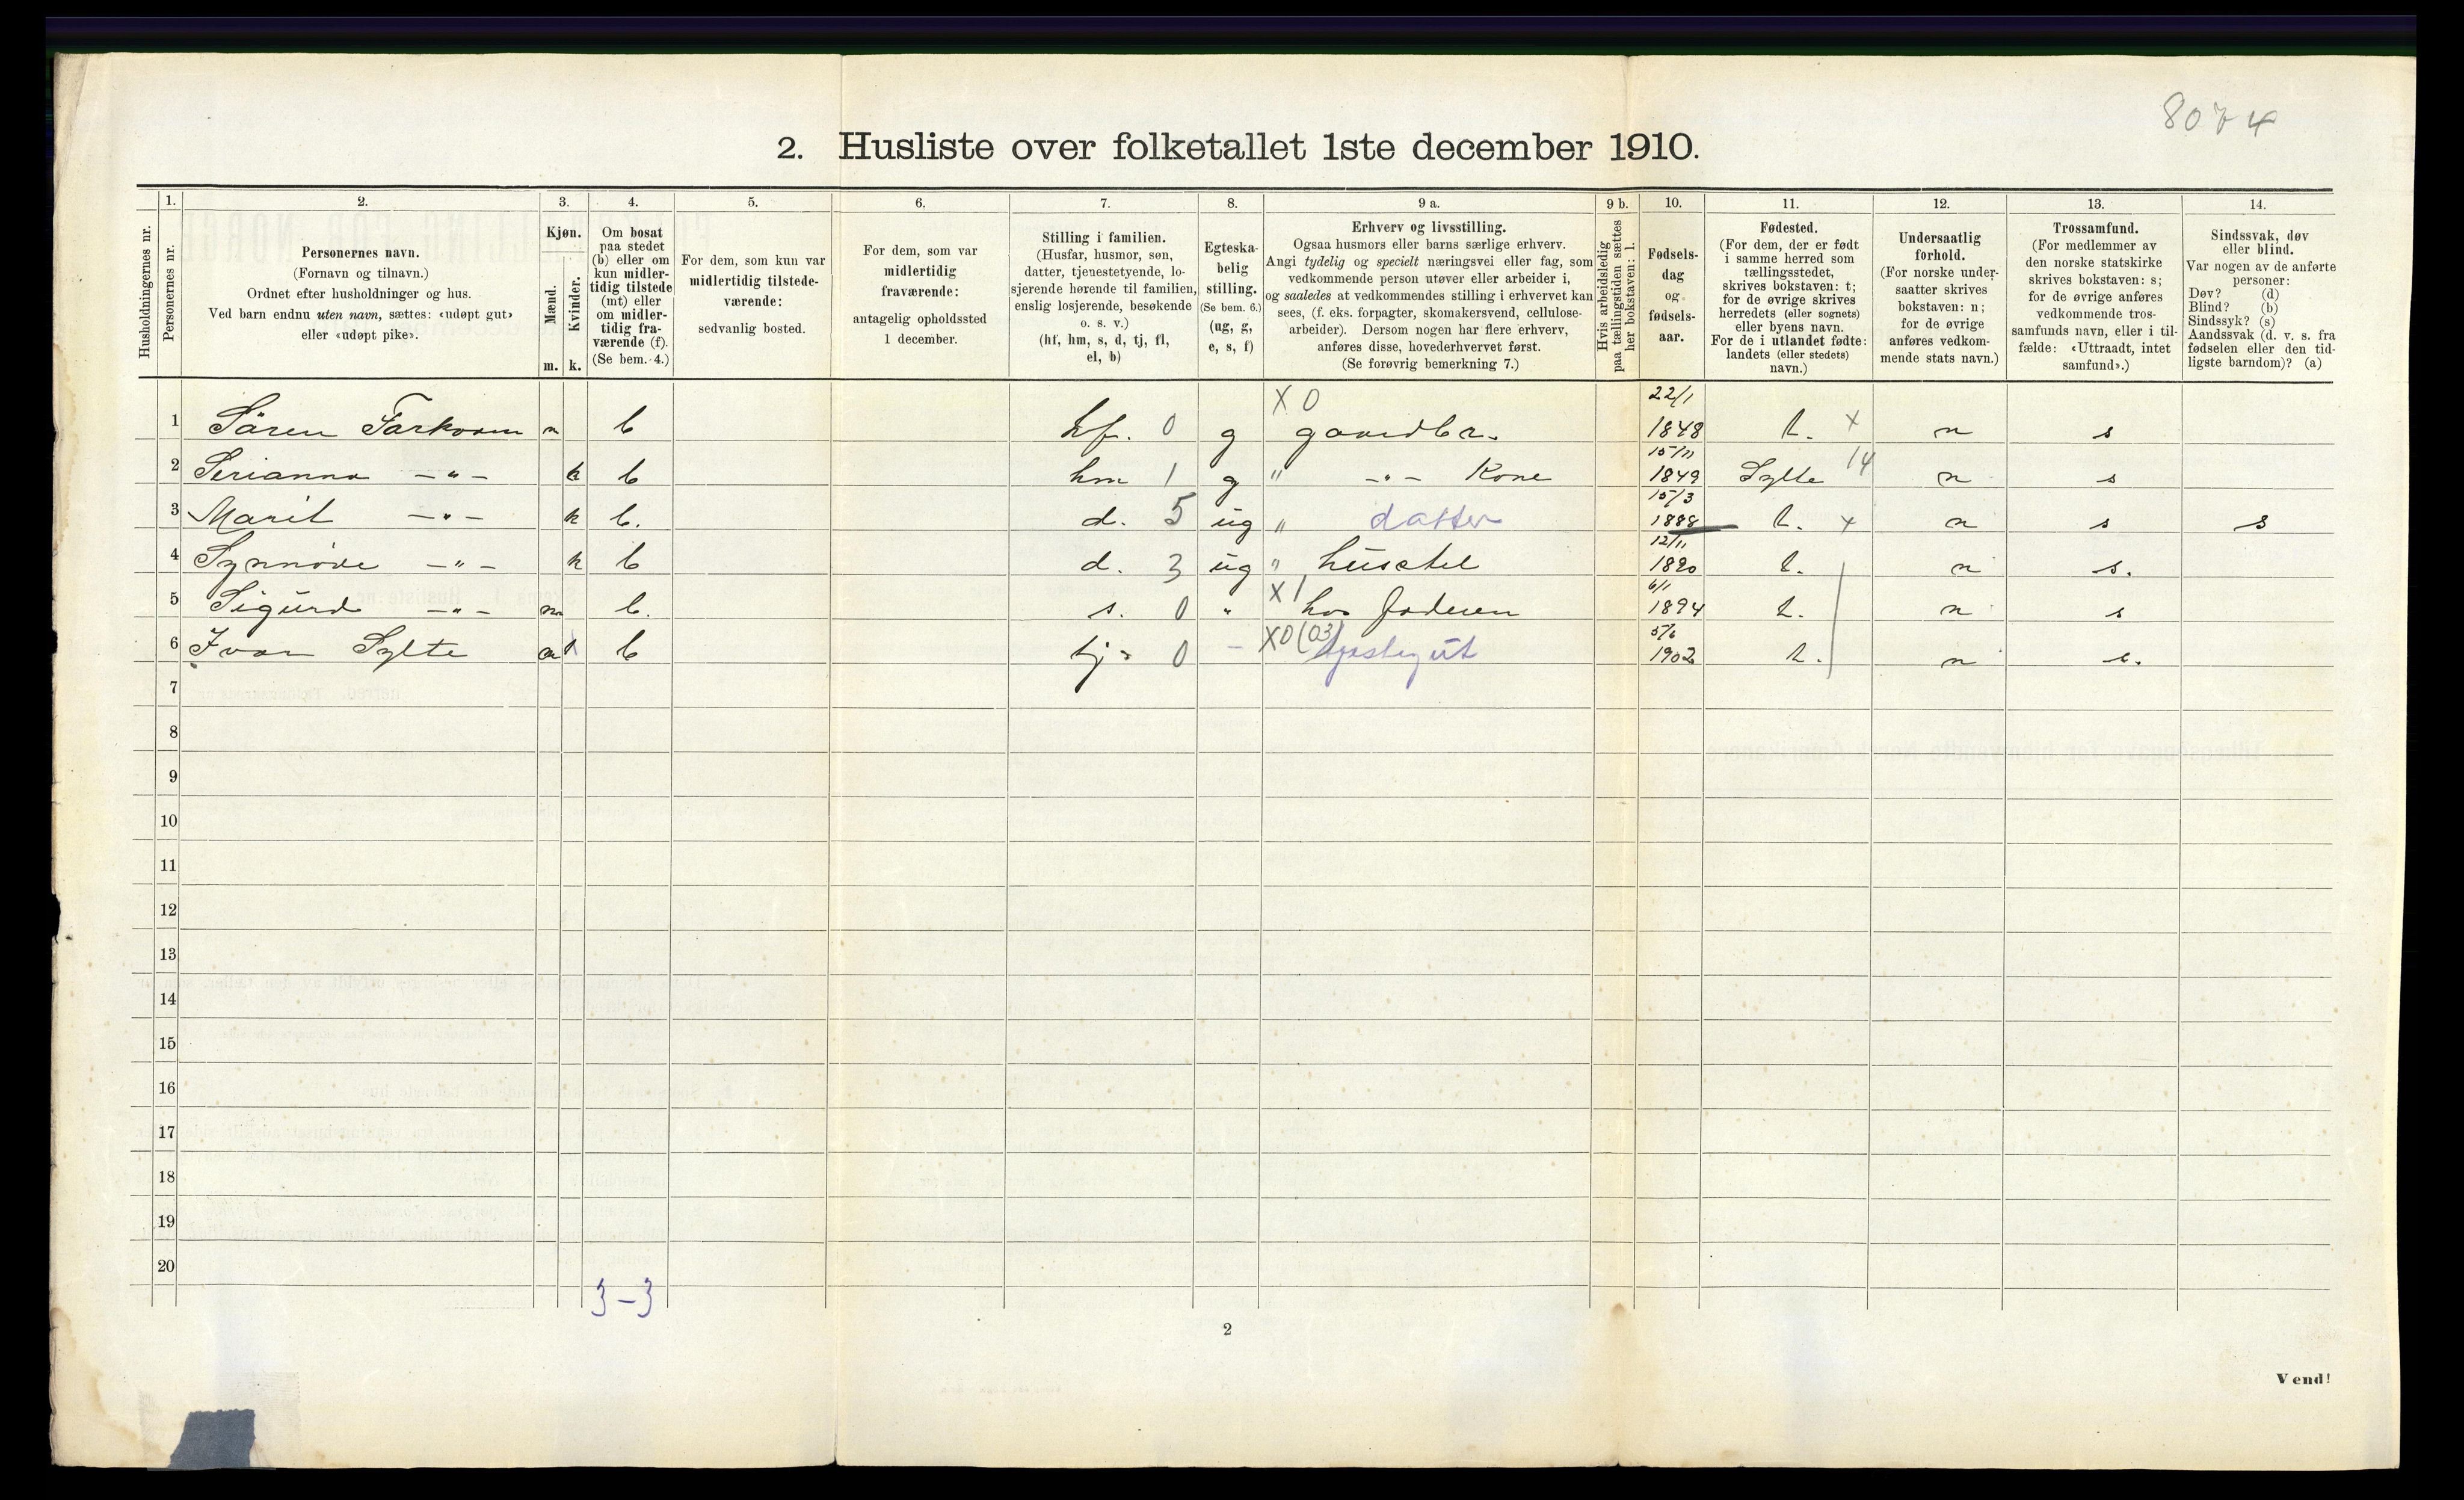 8074
2. Husliste over folketallet 1ste december 1910.
Husholdningernes nr.
1. Personernes nr.
2. Personernes navn.
(Fornavn og tilnavn.)
Ordnet efter husholdninger og hus.
Ved barn endnu uten navn, sættes: «udøpt gut»
eller «udøpt pike».
3. Kjøn.
Mænd. m.
Kvinder. k.
4. Om bosat
paa stedet
(b) eller om
kun midler-
tidig tilstede
(mt) eller
om midler-
tidig fra-
værende (f).
(Se bem. 4.)
5. For dem, som kun var
midlertidig tilstede-
værende:
sedvanlig bosted.
6. For dem, som var
midlertidig
fraværende:
antagelig opholdssted
1 december.
7. Stilling i familien.
(Husfar, husmor, søn,
datter, tjenestetyende, lo-
sjerende hørende til familien,
enslig losjerende, besøkende
o. s. v.)
(hf, hm, s, d, tj, fl,
el, b)
8. Egteska-
belig
stilling.
(Se bem. 6.)
(ug, g,
e, s, f)
9 a. Erhverv og livsstilling.
Ogsaa husmors eller barns særlige erhverv.
Angi tydelig og specielt næringsvei eller fag, som
vedkommende person utøver eller arbeider i,
og saaledes at vedkommendes stilling i erhvervet kan
sees, (f. eks. forpagter, skomakersvend, cellulose-
arbeider). Dersom nogen har flere erhverv,
anføres disse, hovederhvervet først.
(Se forøvrig bemerkning 7.)
9 b. Hvis arbeidsledig
paa tællingstiden sættes
her bokstaven: l.
10. Fødsels-
dag
og
fødsels-
aar.
11. Fødested.
(For dem, der er født
i samme herred som
tællingsstedet,
skrives bokstaven: t;
for de øvrige skrives
herredets (eller sognets)
eller byens navn.
For de i utlandet fødte:
landets (eller stedets)
navn.)
12. Undersaatlig
forhold.
(For norske under-
saatter skrives
bokstaven: n;
for de øvrige
anføres vedkom-
mende stats navn.)
13. Trossamfund.
(For medlemmer av
den norske statskirke
skrives bokstaven: s;
for de øvrige anføres
vedkommende tros-
samfunds navn, eller i til-
fælde: «Uttraadt, intet
samfund».)
14. Sindssvak, døv
eller blind.
Var nogen av de anførte
personer:
Døv? (d)
Blind? (b)
Sindssyk? (s)
Aandssvak (d. v. s. fra
fødselen eller den tid-
ligste barndom)? (a)
1 Sören m b hf. 0 g X 0 gaardbr. 22/1 1848 t. x n s
2 Serianna -"- k b hm 1 g " -"- Kone 15/11 1849 Sylte 14 n s
3 Marit -"- k b. d. 5 ug " datter 15/3 1888 t. x n s s
4 Synnöve -"- k b d. 3 ug " husstel 12/11 1890 t. n s.
5 Sigurd -"- m b. s. 0 " X 1 hos faderen 6/1 1894 t. n s
6 Ivar Sylte m b tj 0 - X0 (03) gjætergut 5/6 1902 t. n s.
7
8
9
10
11
12
13
14
15
16
17
18
19
20
3-3
2
Vend!